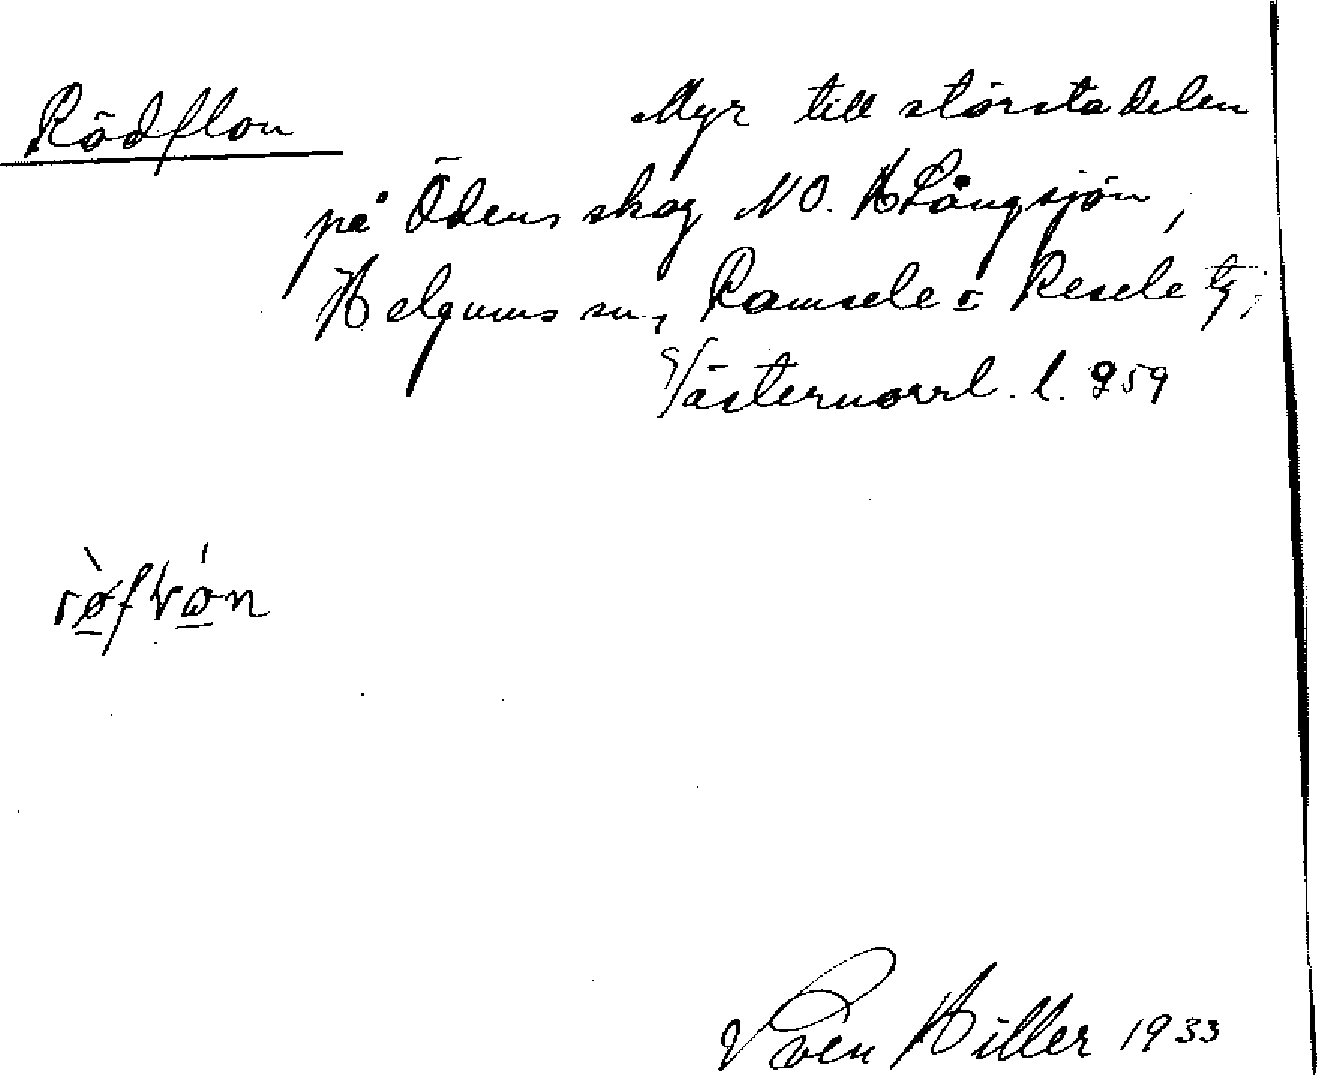 Rödflon Myr till största delen
på Ödens skog NO. Långsjön,
Helgums sn, Ramsele o Resele tg,
Västernorrl. l. 959
Sven Hiller 1933